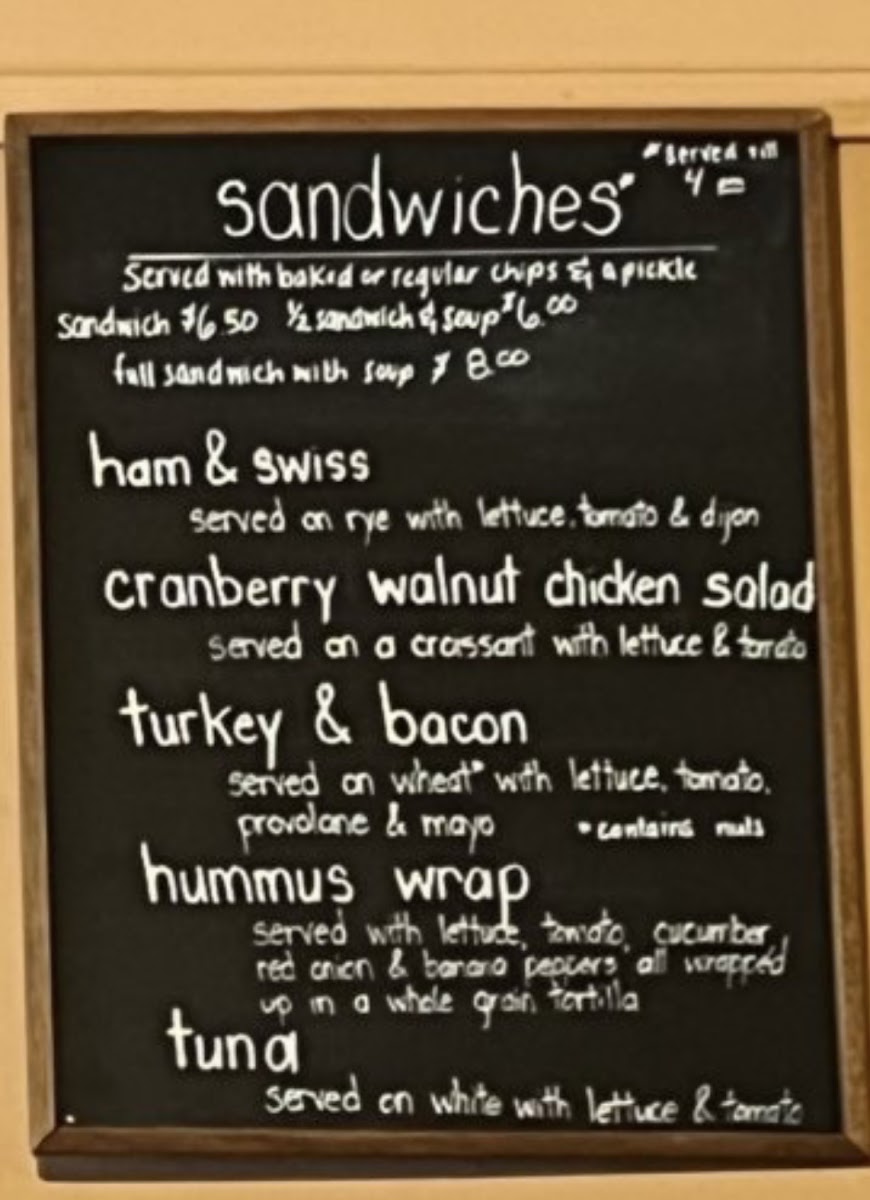 sandwiches*
*served till
4
served with baked or regular chips & a pickle
sandwich $6.50 ½ sandwich & soup $6.00
full sandwich with soup $8.00
ham & swiss
served on rye with lettuce, tomato & dijon
cranberry walnut chicken salad
served on a croissant with lettuce & tomato
turkey & bacon
served on wheat* with lettuce, tomato,
provolone & mayo *contains nuts
hummus wrap
served with lettuce, tomato, cucumber,
red onion & banana peppers all wrapped
up in a whole grain tortilla
tuna
served on white with lettuce & tomato